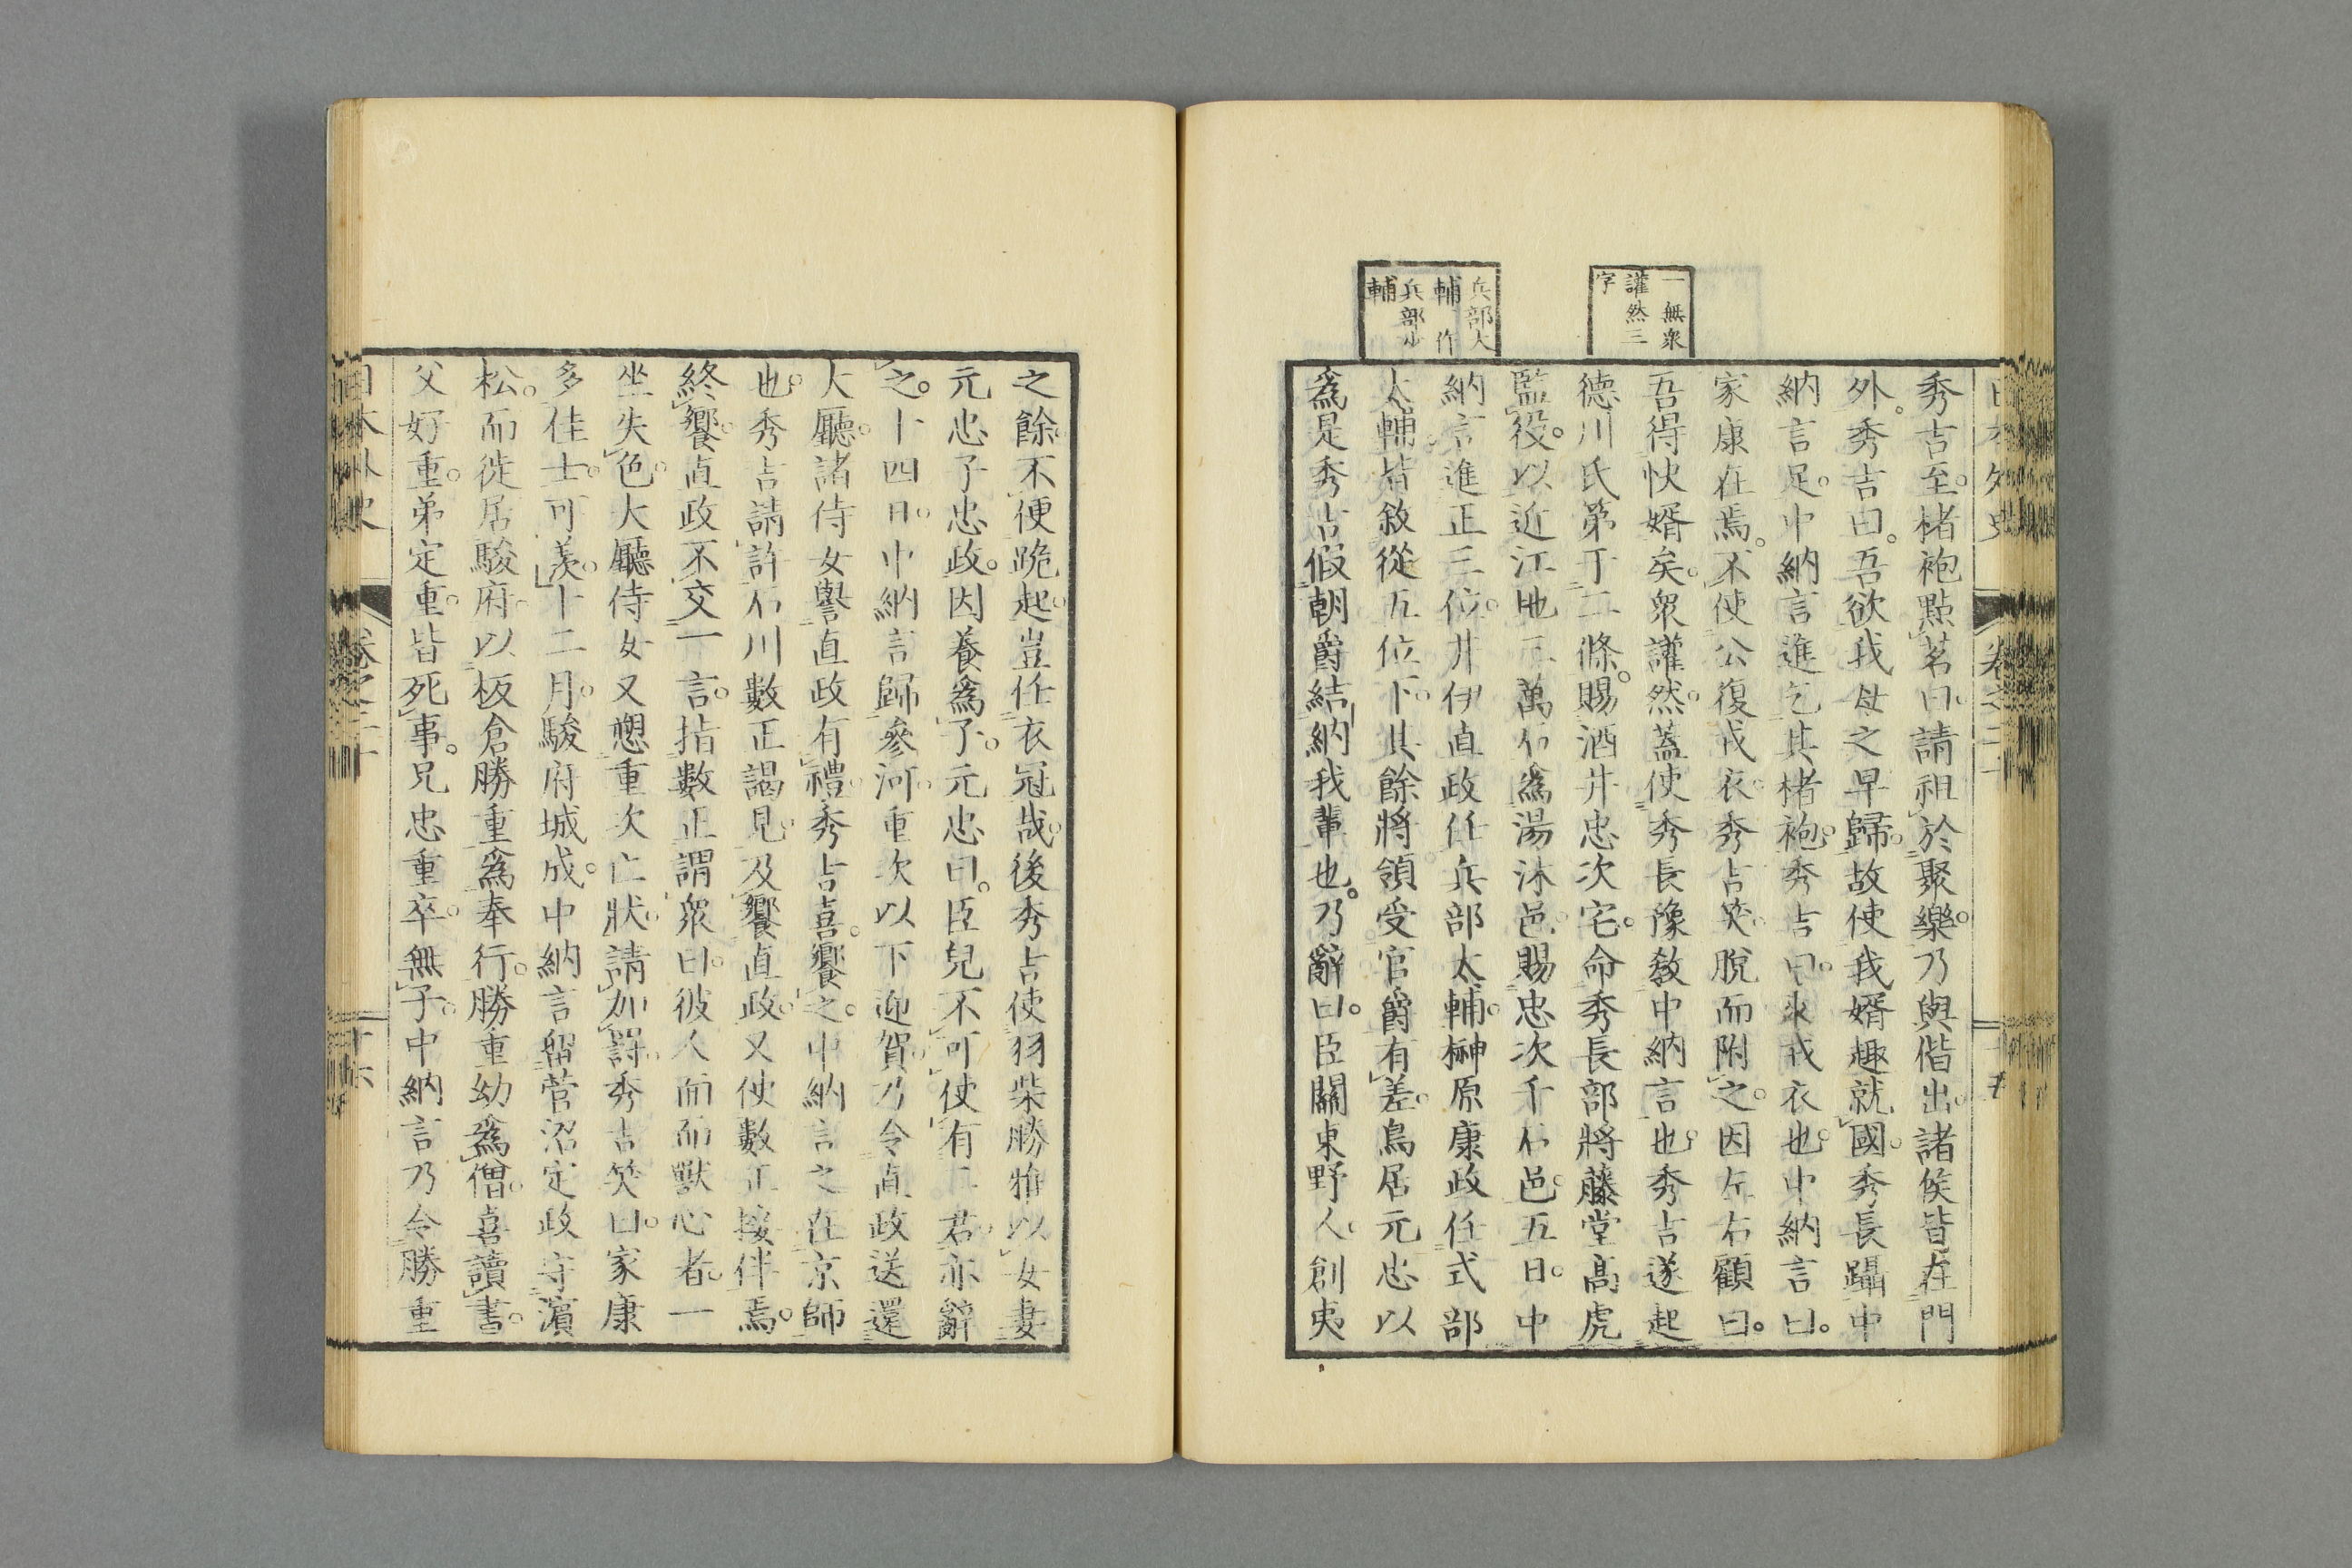 日本外史 卷之二十
秀吉至。楮袍點茗曰。請祖於聚樂。乃與偕出。諸侯皆在門
外。秀吉曰。吾欲我母之早歸。故使我婿趣就國。秀長躡中
納言足。中納言進乞其楮袍。秀吉曰。是我戎衣也。中納言曰。
家康在焉。不使公復戎衣。秀吉笑。脫而附之。因左右顧曰。
吾得快婿矣。衆讙然。蓋使秀長豫敎中納言也。秀吉遂起
德川氏第于二條。賜酒井忠次宅。命秀長部將藤堂高虎
監役。以近江地三萬石爲湯沐邑。賜忠次千石邑。五日。中
納言進正三位。井伊直政任兵部太輔。榊原康政任式部
太輔。皆敘從五位下。其餘將領受官爵有差。鳥居元忠以
爲是秀吉假朝爵結納我輩也。乃辭曰。臣關東野人。創夷
一無衆
讙然三
字
兵部大
輔一作
兵部少
輔
之餘不便跪起。豈任衣冠哉。後秀吉使羽柴勝雅以女妻
元忠子忠政。因養爲子。元忠曰。臣兒不可使有二君。亦辭
之。十四日。中納言歸參河。重次以下迎賀。乃令直政送還
大廳。諸侍女譽直政有禮。秀吉喜。饗之。中納言之在京師
也。秀吉請許石川數正謁見。及饗直政。又使數正接伴焉。
終饗。直政不交一言。指數正謂衆曰。彼人面而獸心者。一
坐失色。大廳侍女又愬重次亡狀。請加罸。秀吉笑曰。家康
多佳士。可羨。十二月。駿府城成。中納言留菅沼定政守濱
松。而徙居駿府。以板倉勝重爲奉行。勝重幼爲僧。喜讀書。
父好重。弟定重。皆死事。兄忠重卒。無子。中納言乃令勝重
日本外史 卷之二十 十六